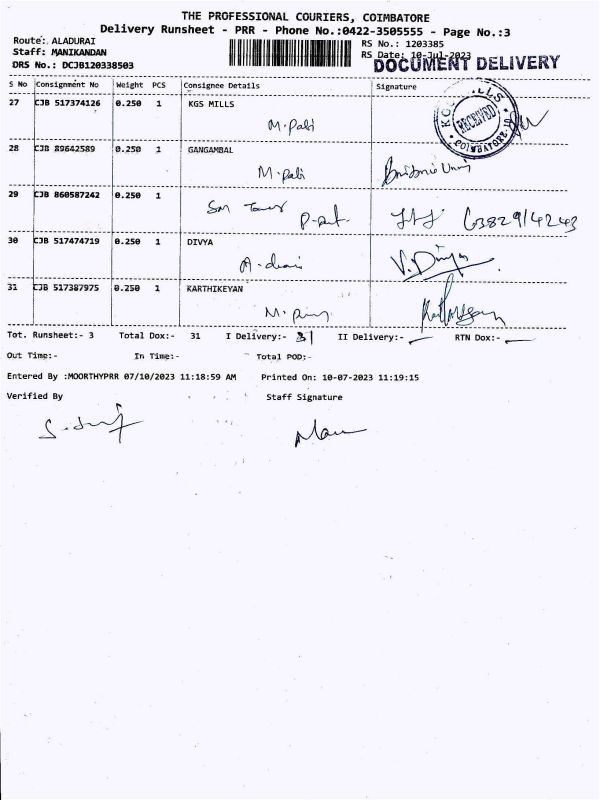 THE PROFESSIONAL COURIERS, COIMBATORE
Delivery Runsheet - PRR - Phone No.:0422-3505555 - Page No.:3
Route: ALADURAI
RS No.: 1203385
Staff: MANIKANDAN
RS Date: 10-Jul-2023
DRS No.: DCJB120338503
DOCUMENT DELIVERY
S No Consignment No Weight PCS Consignee Details Signature
27 CJB 517374126 0.250 1 KGS MILLS
M.pali
RECEIVED
COIMBATORE
28 CJB 89642589 0.250 1 GANGAMBAL
M.pali
29 CJB 860587242 0.250 1
30 CJB 517474719 0.250 1 DIVYA
V. Divya
31 CJB 517387975 0.250 1 KARTHIKEYAN
Tot. Runsheet:- 3 Total Dox:- 31 I Delivery:- 31 II Delivery:- RTN Dox:-
Out Time:- In Time:- Total POD:-
Entered By :MOORTHYPRR 07/10/2023 11:18:59 AM Printed On: 10-07-2023 11:19:15
Verified By Staff Signature